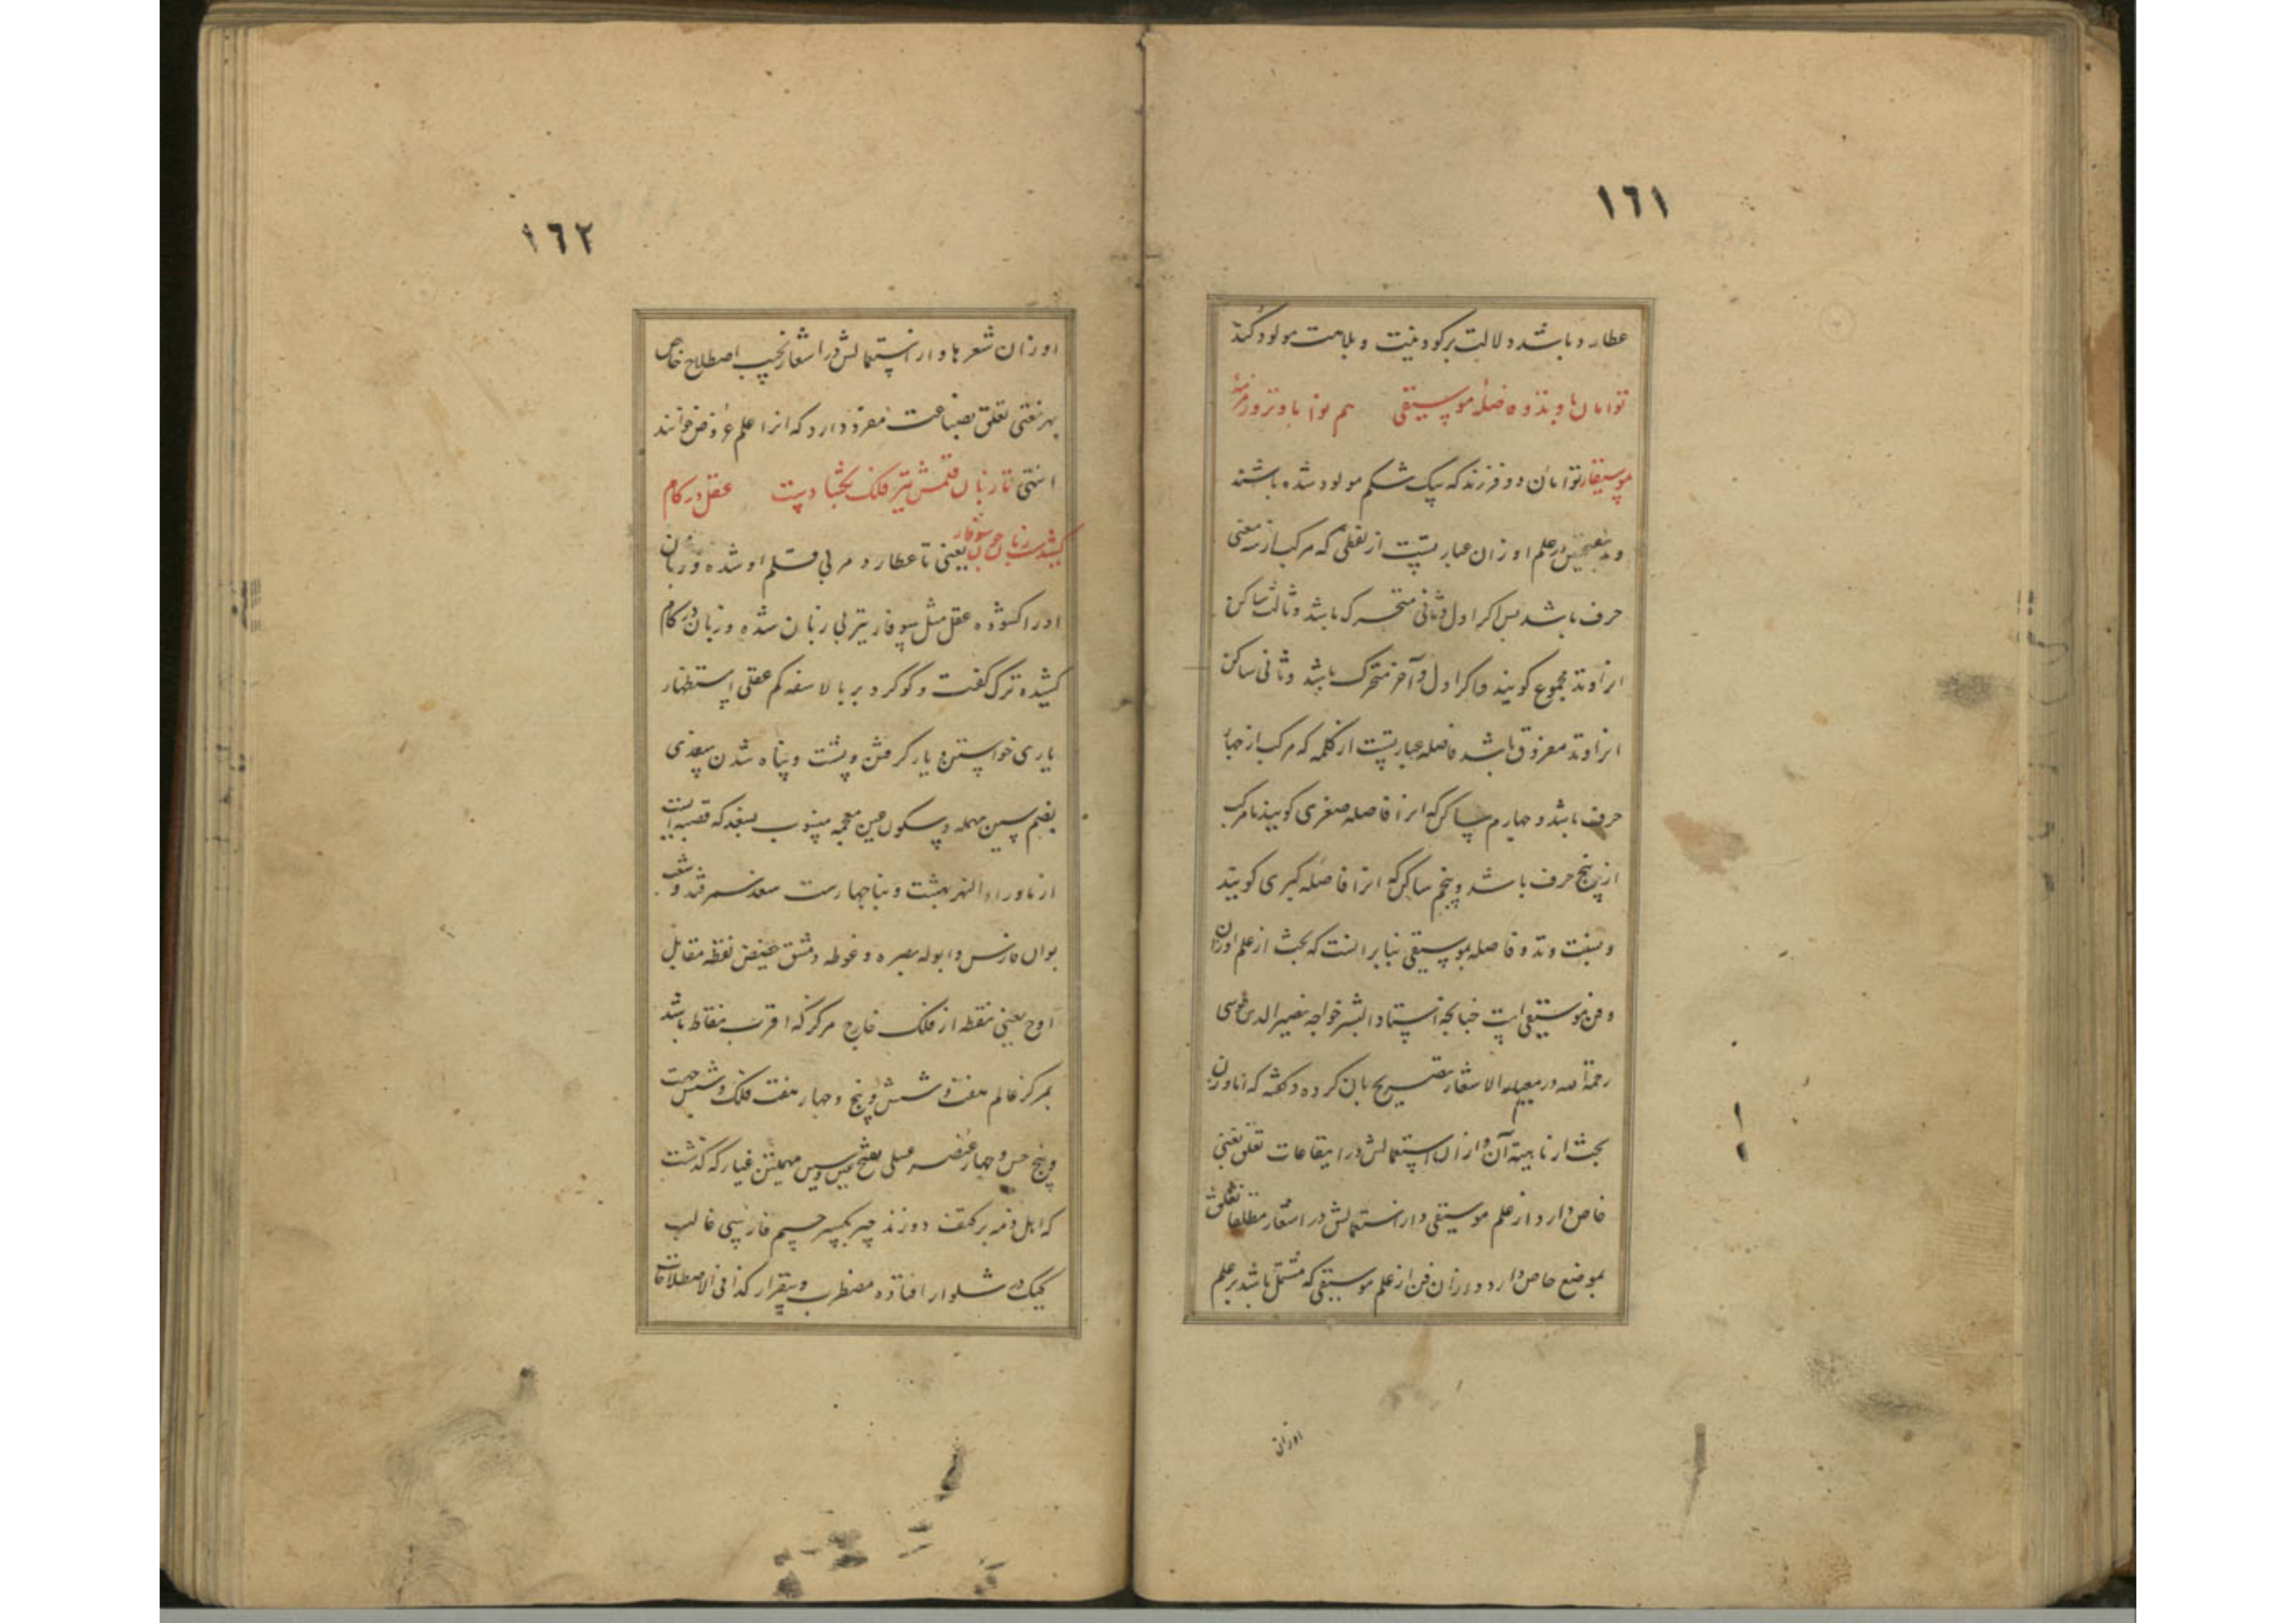 ١٦١
عطارد باشد دلالت بر کودنیت و بلاهت مولود کند
توامان با وتد و فاصلهٔ موسیقی هم نوا با وتر و زمزمهٔ
موسیقار توامان دو فرزند که بیک شکم مولود شده باشند
و وتد در علم اوزان عبارتست از لفظی که مرکب از سه
حرف باشد پس اکر اول و ثانی متحرک باشد و ثالث ساکن
انرا وتد مجموع کویند و اکر اول و آخر متحرک باشد و ثانی ساکن
انرا وتد مفروق باشد فاصله عبارتست از کلمه که مرکب از چهار
حرف باشد و چهارم ساکن که انرا فاصله صغری کویند یا مرکب
از پنج حرف باشد و پنجم ساکن که انرا فاصلهٔ کبری کویند
و نسبت وتد و فاصله بموسیقی بنابر انست که بحث از علم اوزان
و فن موسیقی است چنانچه استاد البشر خواجه نصیر الدین طوسی
رحمة الله در معیار الاشعار تصریح بان کرده و کفته که اما وزن
بحث از ماهیة آن و از استعمالش در ایقاعات تعلق بفنی
خاص دارد از علم موسیقی و از استعمالش در اشعار مطلقا تعلق
بموضع خاص دارد در ان فن از علم موسیقی که مشتمل باشد بر علم
اوزانی
١٦٢
اوزان شعرها و از استعمالش در اشعار بحسب اصطلاح خاص
بهر لغتی تعلق بصناعت مفرد دارد که انرا علم عروض خوانند
انتهی تا زبان قلمش تیر فلک بکشادست عقل در کام
کشیدست زبان چون سوفار یعنی تا عطارد مربی قلم او شده و زبان
اورا کشوده عقل مثل سوفار تیر بی زبان شده و زبان در کام
کشیده ترک کفت و کو کرد بر بالا سفه کم عقلی استظهار
یاری خواستن و یار کرفتن و پشت و پناه شدن سغدی
بضم سین مهمله و سکون غین معجمه منسوب بسغد که قصبه ایست
از ماوراء النهر بهشت دنیا چهارست سغد سمرقند و شعب
بوان فارس و ابوله بصره و غوطه دمشق حضیض نقطه مقابل
اوج یعنی نقطه از فلک خارج مرکز که اقرب نقاط باشد
بمرکز عالم هفت و شش و پنج و چهار هفت فلک و شش جهت
و پنج حس و چهار عنصر عسلی بفتح عین و سین مهملتین غیار که کذشت
که اهل ذمه بر کتف دوزند چیر بکسر جیم فارسی غالب
کیک در شلوار افتاده مضطرب و بیقرار کذا فی الاصطلاحات